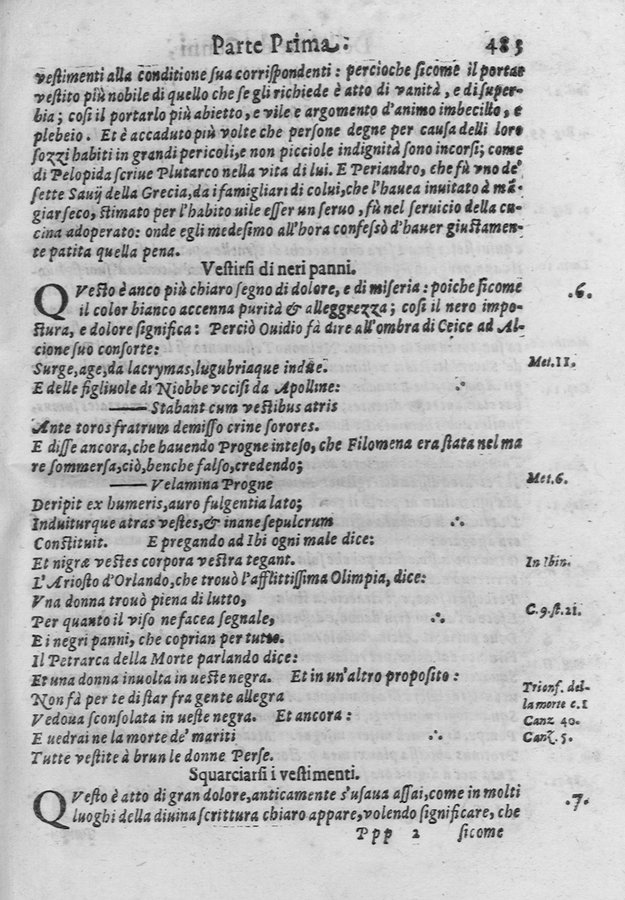 Parte Prima. 483
vestimenti alla conditione sua corrispondenti : percioche sicome il portar
vestito più nobile di quello che se gli richiede è atto di vanità , e di super-
bia ; cosi il portarlo più abietto , e vile e argomento d'animo imbecillo , e
plebeio . Et è accaduto più volte che persone degne per causa delli loro
sozzi habiti in grandi pericoli, e non picciole indignità sono incorsi ; come
di Pelopida scriue Plutarco nella vita di lui. E Periandro, che fù vno de'
sette Sauij della Grecia, da i famigliari di colui, che l'hauea inuitato à mā-
giar seco, stimato per l'habito uile esser un seruo , fù nel seruicio della cu-
cina adoperato: onde egli medesimo all'hora confessò d'hauer giustamen-
te patita quella pena.
Vestirsi di neri panni.
QVesto è anco più chiaro segno di dolore, e di miseria : poiche sicome .6.
il color bianco accenna purità & allegrezza ; cosi il nero impo-
stura, e dolore significa : Perciò Ouidio fà dire all'ombra di Ceice ad Al-
cione suo consorte:
Surge, age, da lacrymas, lugubriaque indue. Met.11.
E delle figliuole di Niobbe vccisi da Apolline:
—— Stabant cum vestibus atris
Ante toros fratrum demisso crine sorores.
E disse ancora, che hauendo Progne inteso, che Filomena era stata nel ma
re sommersa, ciò, benche falso, credendo;
—— Velamina Progne Met.6.
Deripit ex humeris, auro fulgentia lato;
Induiturque atras vestes, & inane sepulcrum
Constituit. E pregando ad Ibi ogni male dice:
Et nigræ vestes corpora vestra tegant. In Ibin.
L'Ariosto d'Orlando, che trouò l'afflittissima Olimpia, dice:
Vna donna trouò piena di lutto, C.9.st.21.
Per quanto il viso ne facea segnale,
E i negri panni, che coprian per tutto.
Il Petrarca della Morte parlando dice:
Et una donna inuolta in ueste negra. Et in un'altro proposito : Trionf. del-
Non fà per te di star fra gente allegra la morte c.1
Vedoua sconsolata in ueste negra. Et ancora : Canz 40.
E uedrai ne la morte de' mariti Canz. 5.
Tutte vestite à brun le donne Perse.
Squarciarsi i vestimenti.
QVesto è atto di gran dolore, anticamente s'usaua assai, come in molti .7.
luoghi della diuina scrittura chiaro appare, volendo significare, che
Ppp 2 sicome